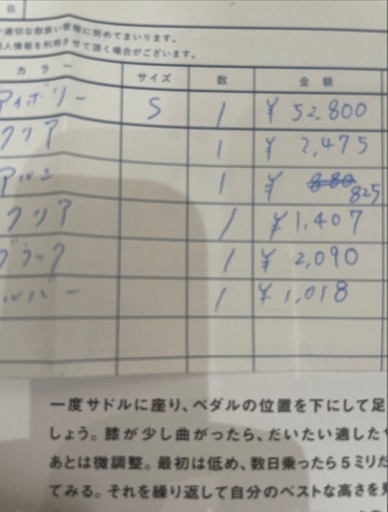 適切な取扱い管理に努めてまいります。
人情報を利用させて頂く場合がございます。
カラー サイズ 数 金額
アイボリー S 1 ¥52,800
クリア 1 ¥2,475
アルミ 1 ¥ 880 825
クリア 1 ¥1,407
ブラック 1 ¥2,090
ルバー 1 ¥1,018
一度サドルに座り、ペダルの位置を下にして足
しょう。膝が少し曲がったら、だいたい適した
あとは微調整。最初は低め、数日乗ったら5ミリだ
てみる。それを繰り返して自分のベストな高さを見